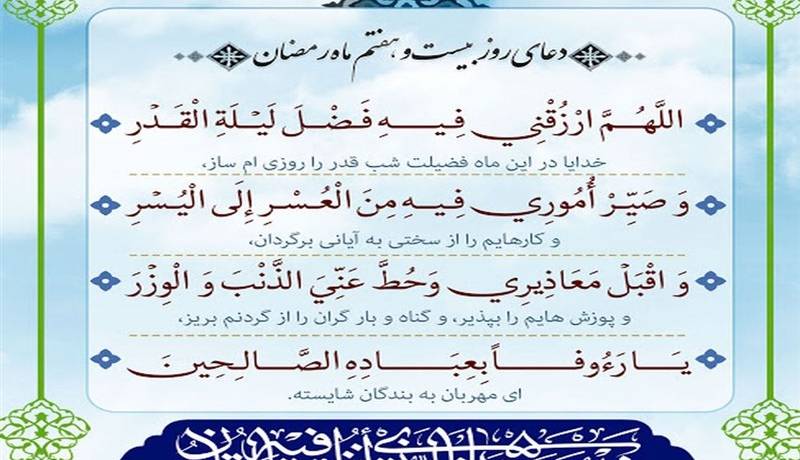 دعای روز بیست و هفتم ماه رمضان
اللَّهُمَّ ارْزُقْنِي فِيهِ فَضْلَ لَيْلَةِ الْقَدْرِ
خدایا در این ماه فضیلت شب قدر را روزی ام ساز،
وَ صَيِّرْ أُمُورِي فِيهِ مِنَ الْعُسْرِ إِلَى الْيُسْرِ
و کارهایم را از سختی به آیانی برگردان،
وَ اقْبَلْ مَعَاذِيرِي وَحُطَّ عَنِّيَ الذَّنْبَ وَ الْوِزْرَ
و پوزش هایم را بپذیر، و گناه و بار گران را از گردنم بریز،
يَا رَءُوفاً بِعِبَادِهِ الصَّالِحِينَ
ای مهربان به بندگان شایسته.